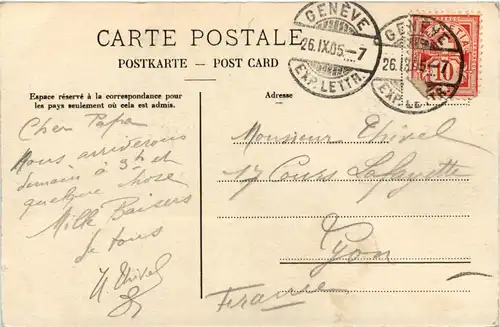 CARTE POSTALE
POSTKARTE — POST CARD
Espace réservé à la correspondance pour
les pays seulement où cela est admis.
Adresse
GENÈVE
26.IX.05.–7
EXP. LETTR.
GENÈVE
26.IX.05.–7
EXP. LETTR.
10
Cher Papa
Nous arriverons
demain à 3h et
quelque chose
Mille Baisers
de tous
Thivel
Monsieur Thivel
17 Cours Lafayette
Lyon
France